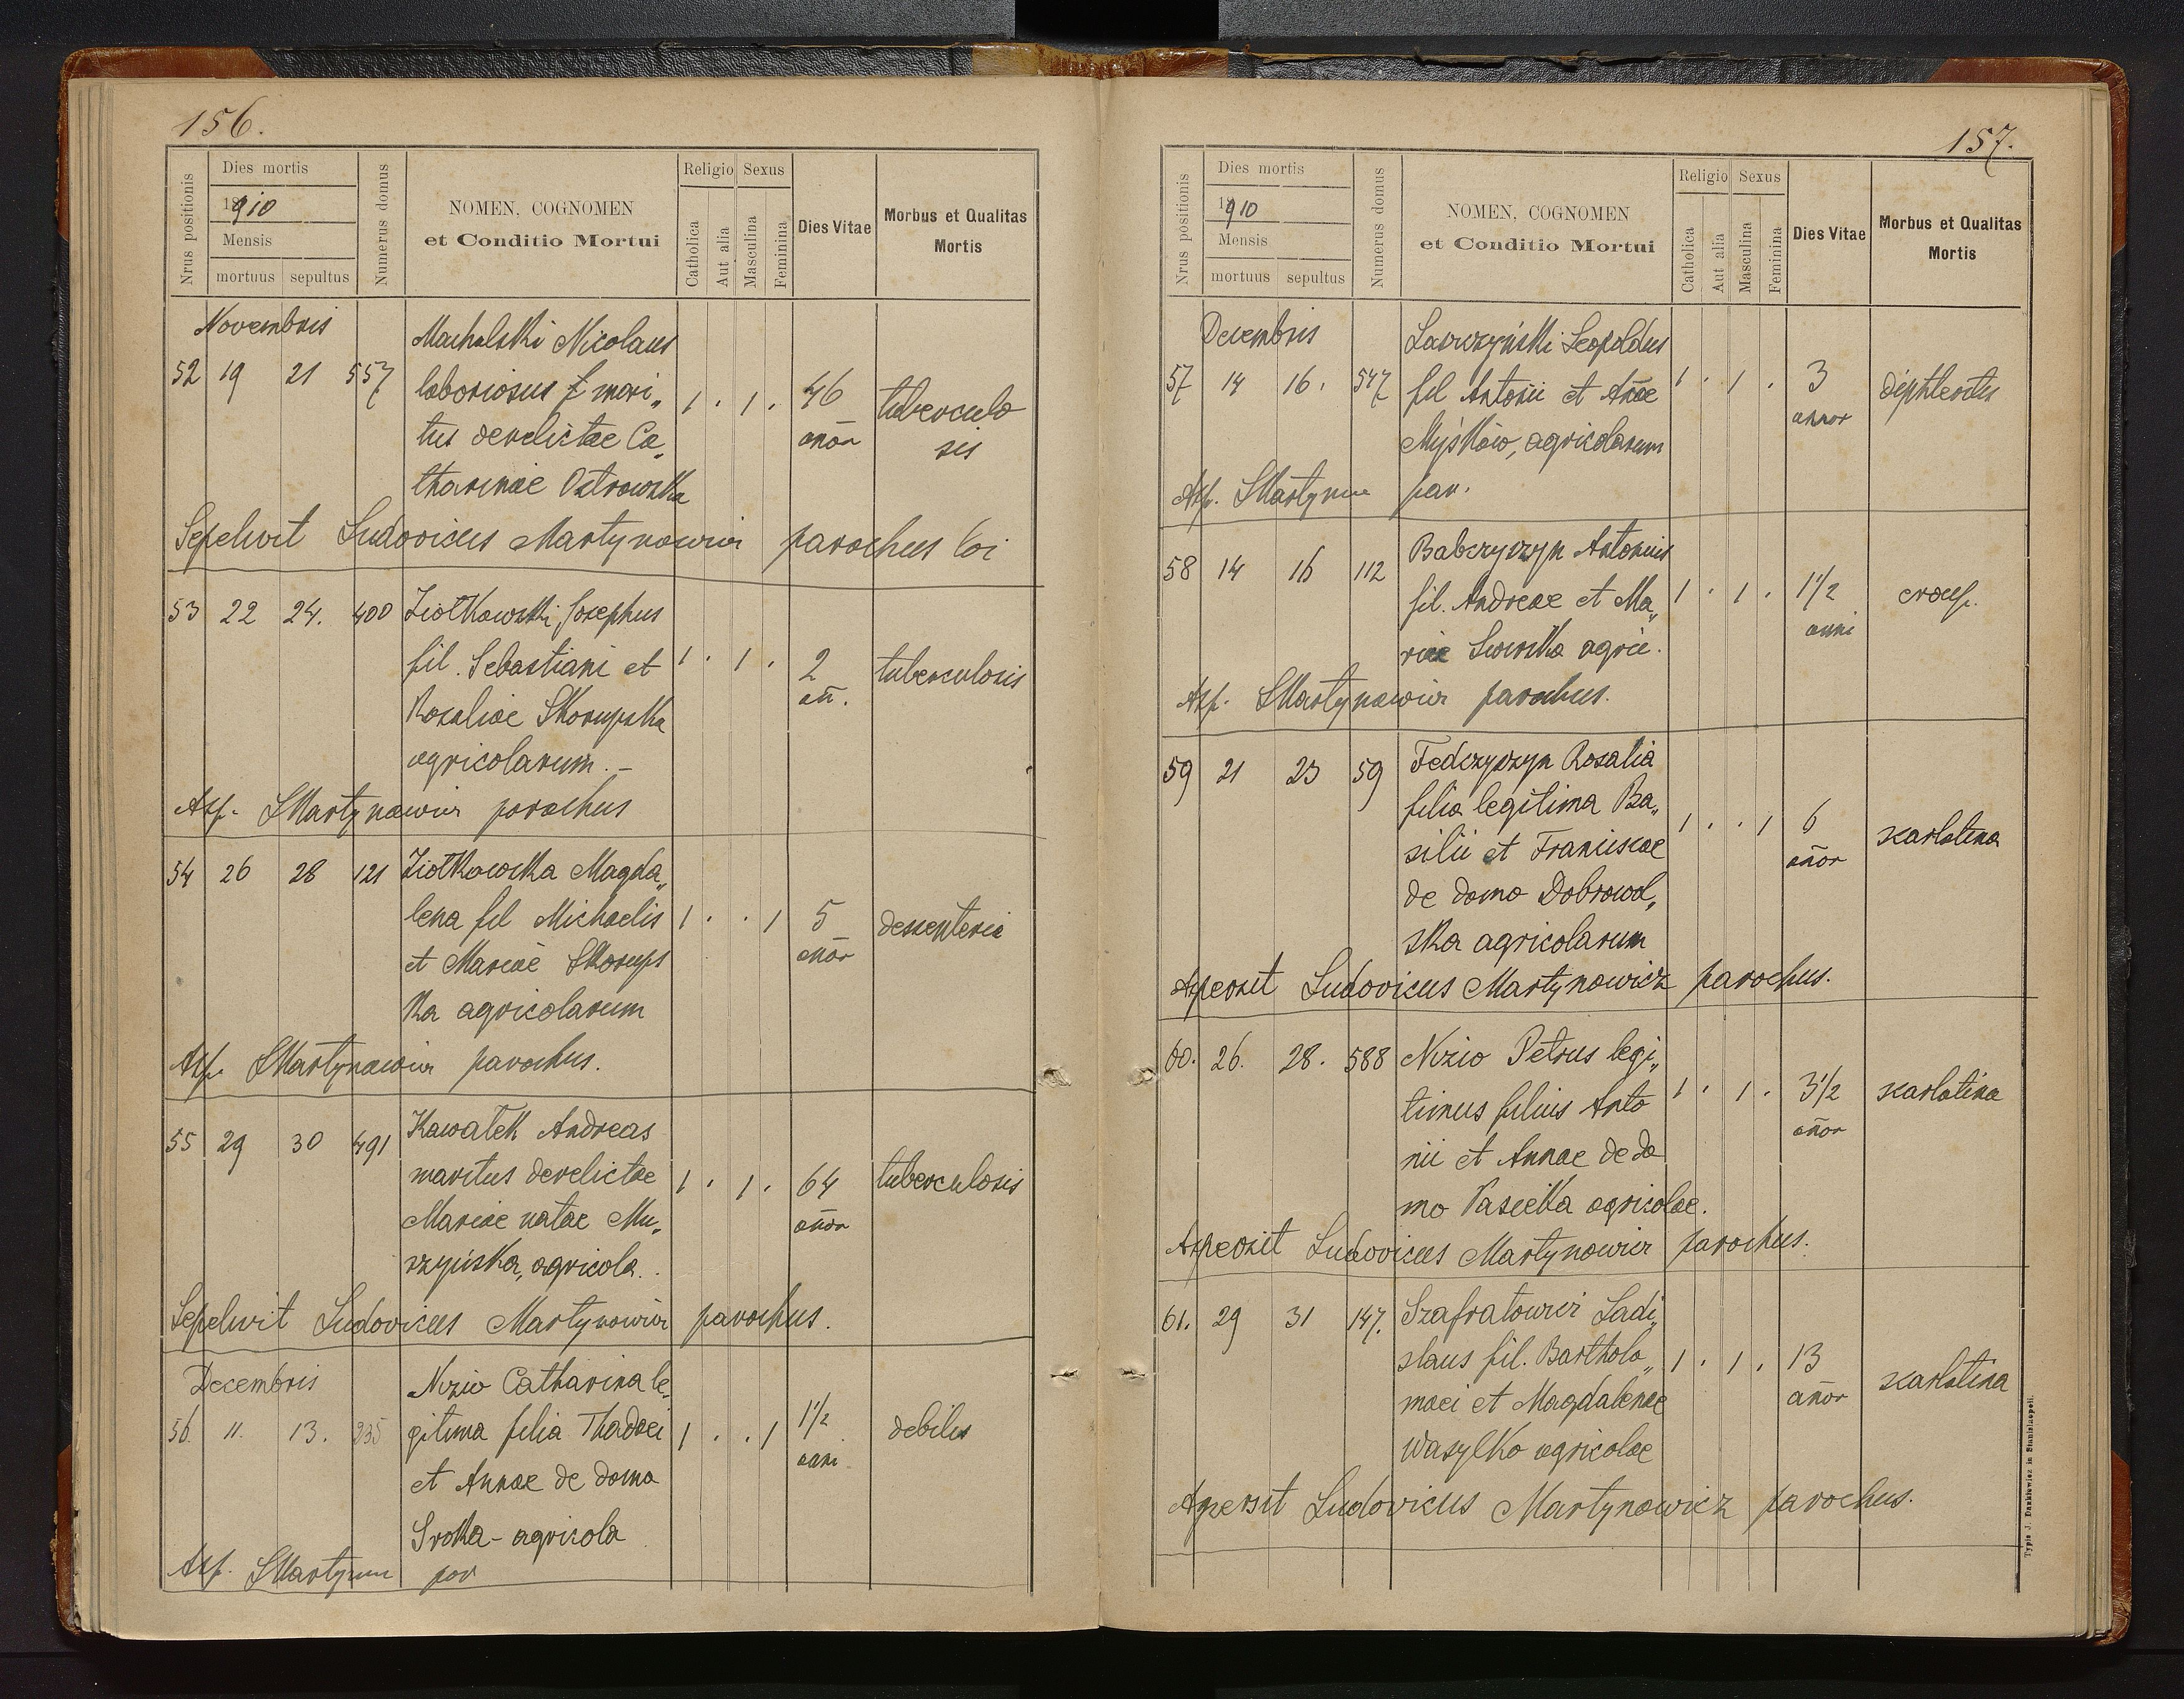 156.
Nrus positionis
Dies mortis
1910
Mensis
mortuus sepultus
Numerus domus
NOMEN, COGNOMEN
et Conditio Mortui
Religio Sexus
Catholica
Aut alia
Masculina
Feminina
Dies Vitae
Morbus et Qualitas
Mortis
Novembris
Machalski Nicolaus
52 19 21 557 laboriosus f mari„
tus derelictae Ca„
tharinae Ostrowska
1 . 1 . 46
añor
tuberculo
sis
Sepelivit Ludovicus Martynowicz parochus loi
53 22 24. 400 Ziołkowski Josephus
fil. Sebastiani et
Rosaliae Skorupska
agricolarum. –
1 . 1 . 2
añ.
tuberculosis
Asp. LMartynowicz parochus
54 26 28 121 Ziołkowska Magda„
lena fil Michaelis
et Mariae Skorups
ka agricolarum
1 . . 1 5
añor
dessenteria
Asp. LMartynowicz parochus.
55 29 30 491 Kawałek Andreas
maritus derelictae
Mariae natae Mu„
rzyńska, agricola.
1 . 1 . 64
añor
tuberculosis
Sepelivit Ludovicus Martynowicz parochus.
Decembris
Nizio Catharina le„
56. 11. 13. 235 gitima filia Thadaei
et Annae de domo
Sroka - agricola
1 . . 1 1½
anni
debilis
Asp. LMartynow par
157.
Nrus positionis
Dies mortis
1910
Mensis
mortuus sepultus
Numerus domus
NOMEN, COGNOMEN
et Conditio Mortui
Religio Sexus
Catholica
Aut alia
Masculina
Feminina
Dies Vitae
Morbus et Qualitas
Mortis
Decembris
Lawrzyński Leopoldus
57 14 16. 547 fil Antonii et Añae
Myśków, agricolarum
1 . 1 . 3
annor
diphteritis
Asp. LMartynow par.
58 14 16 112 Babczyszyn Antonius
fil. Andreae et Ma„
riae Swirska agric.
1 . 1 . 1½
anni
croup.
Asp. LMartynowicz parochus.
59 21 23 59 Fedczyszyn Rosalia
filia legitima Ba„
silii et Franciscae
de domo Dobrowol„
ska agricolarum
1 . . 1 6
añor
scarlatina
Aspersit Ludovicus Martynowicz parochus.
60. 26. 28. 588 Nizio Petrus legi„
timus filius Anto
nii et Annae de do
mo Pasieka agricolae.
1 . 1 . 3½
añor
scarlatina
Aspersit Ludovicus Martynowicz parochus.
61. 29 31 147. Szafratowicz Ladi„
slaus fil. Bartholo„
maei et Magdalenae
Wasylko agricolae
1 . 1 . 13
añor
scarlatina
Aspersit Ludovicus Martynowicz parochus.
Typis J. Dankiewicz in Stanislaopoli.